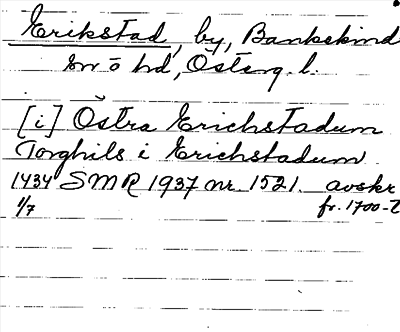 Erikstad, by, Bankekind
sn o hd, Österg. l.
[i] Östra Erichstadum
Torghils i Erichstadum
1434 SMR 1937 nr. 1521. avskr
1/7 fr. 1700-t